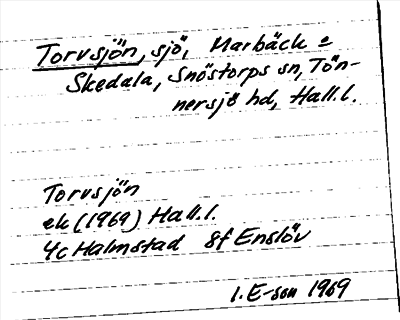 Torvsjön, sjö, Marbäck =
Skedala, Snöstorps sn, Tön-
nersjö hd, Hall.l.
Torvsjön
ek (1969) Hall.l.
4c Halmstad 8f Enslöv
I. E-son 1969